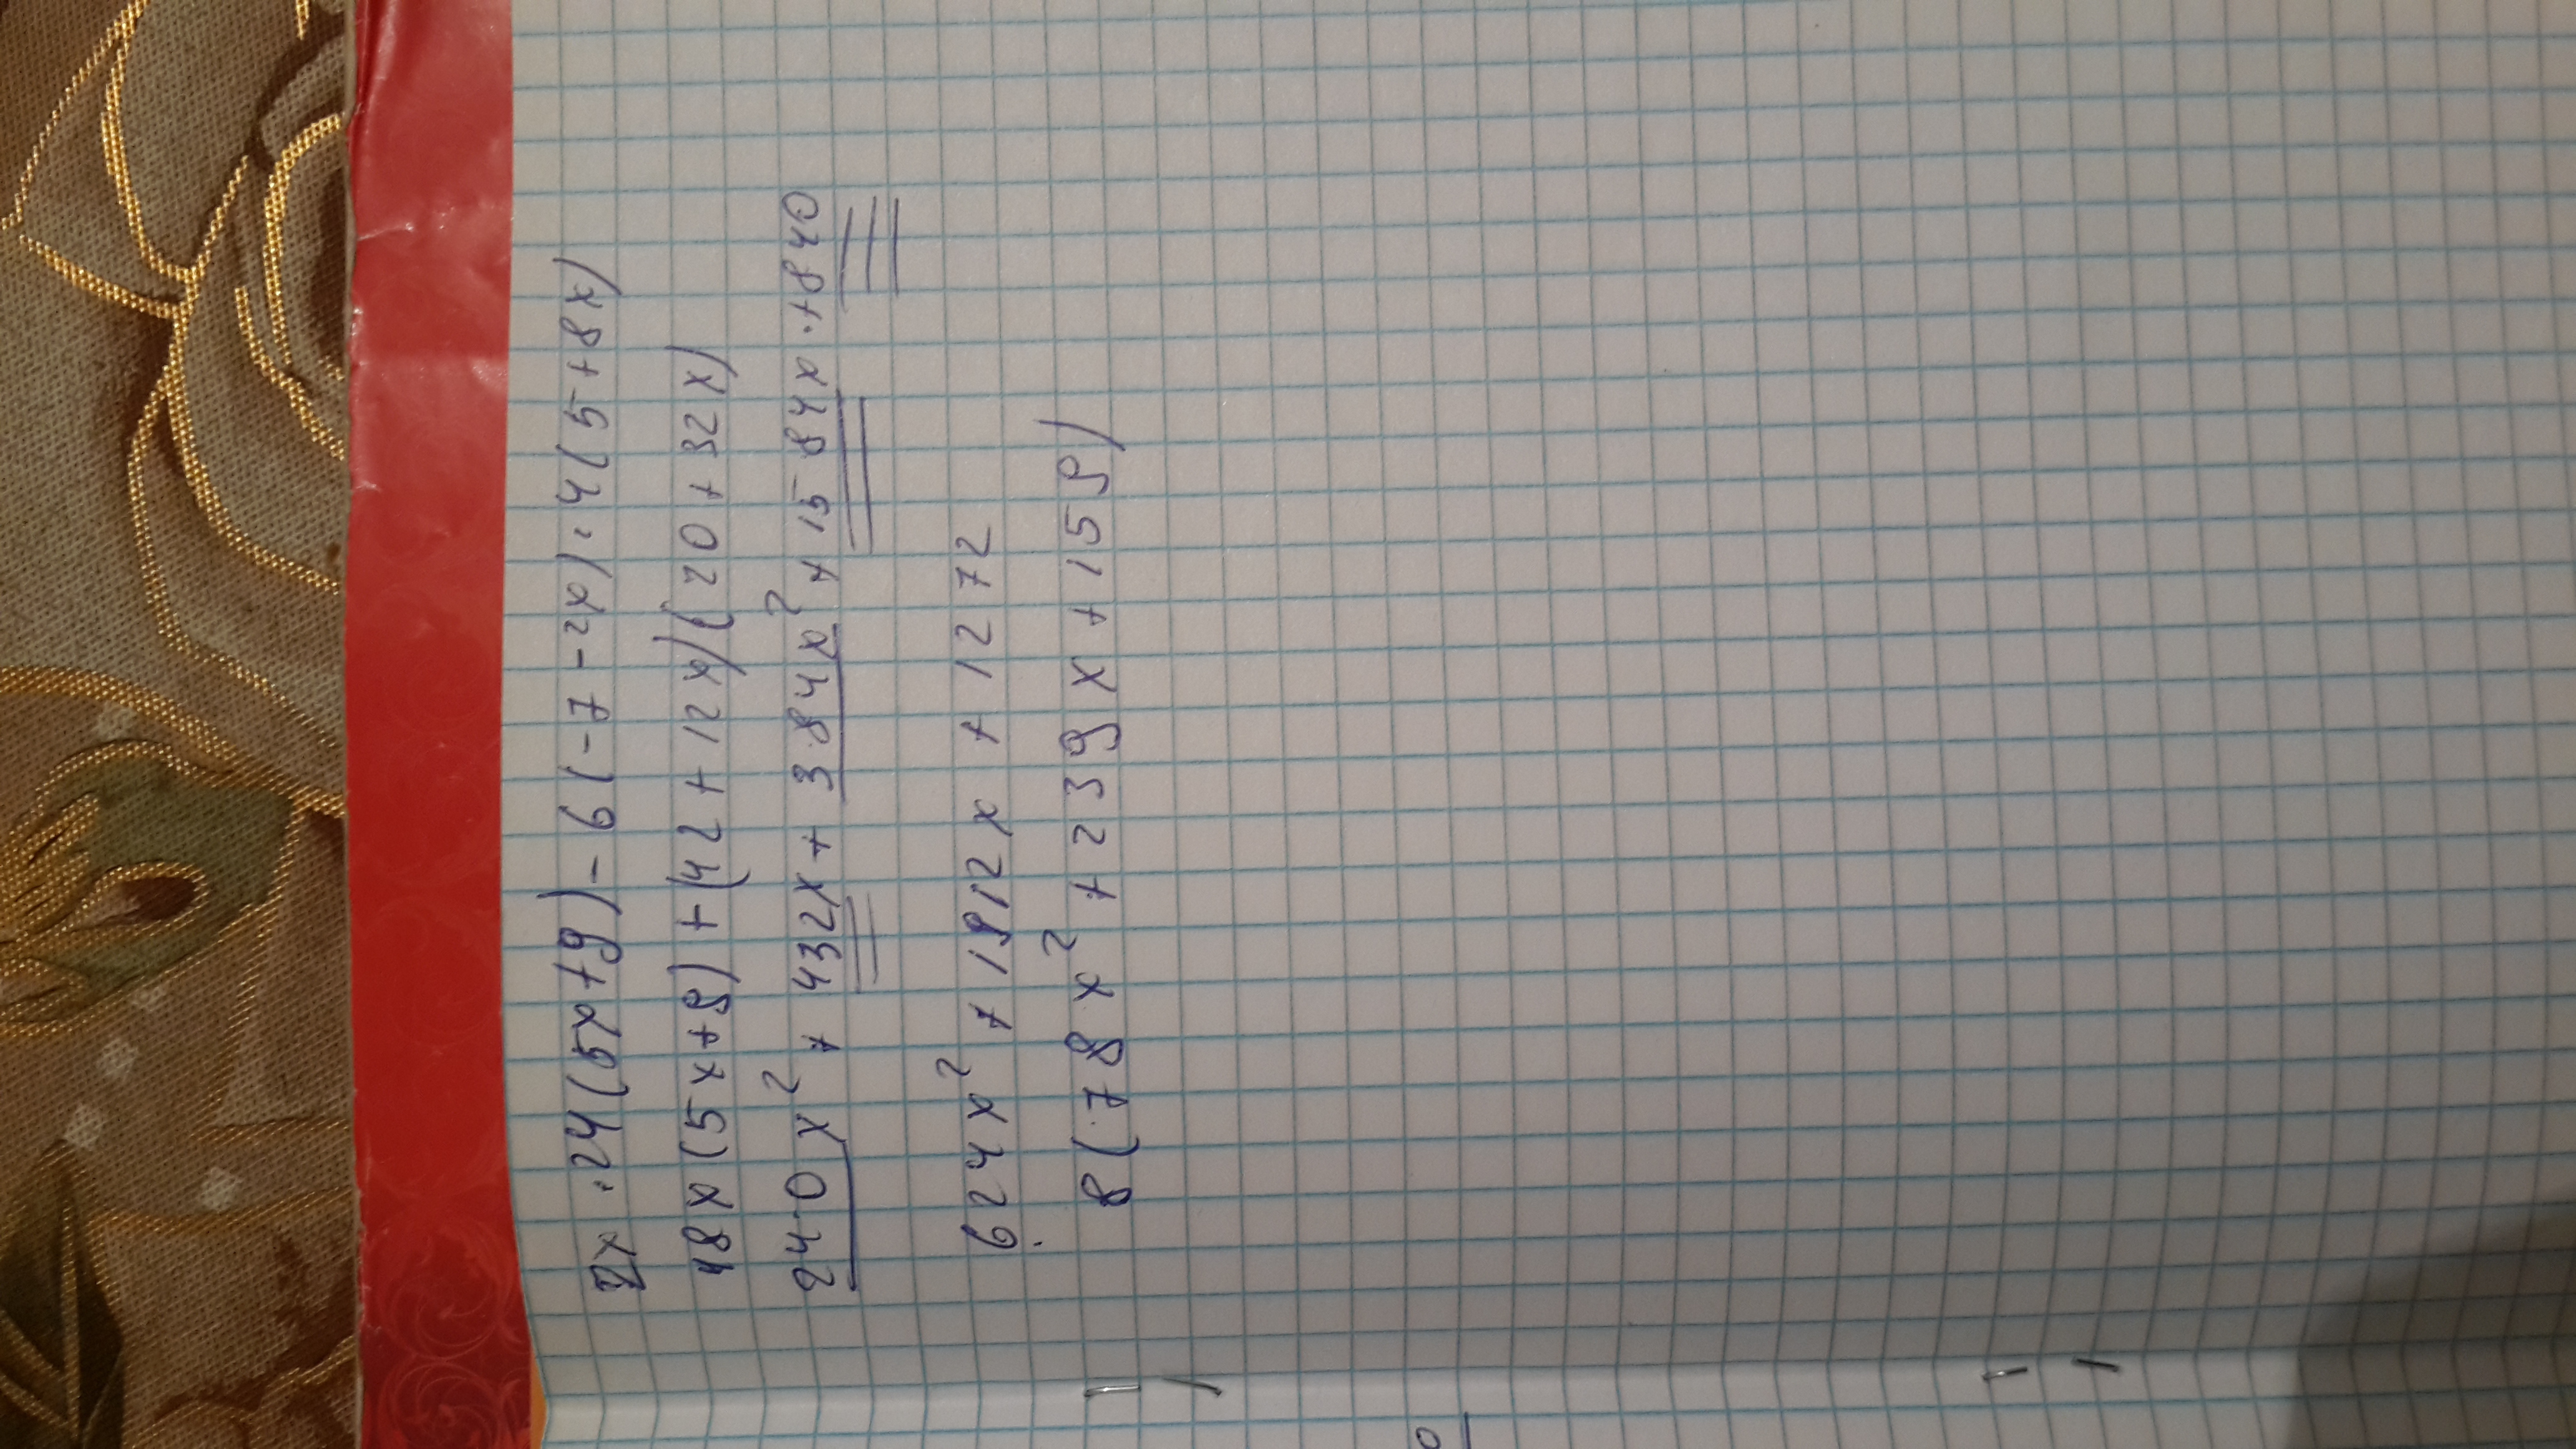 2x · 24(5x+9) - 6(-7-2x) · 4(5+8x)
48x(5x+9) + (42+12x)(20+32x)
240x² + 432x + 384x² + 1584x + 840
624x² + 1912x + 1272
8(78x² + 239x + 159)